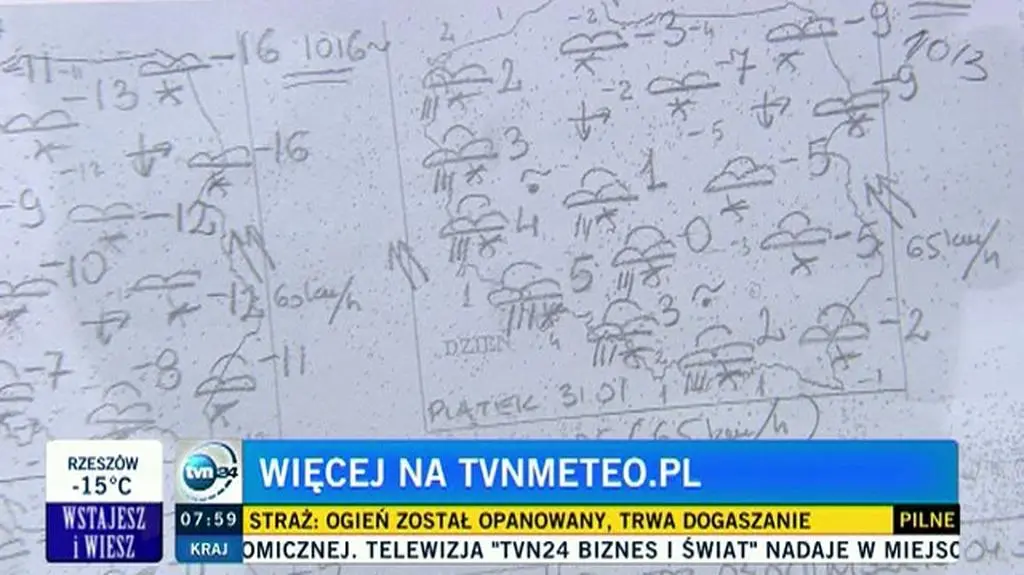 -11 -11 -16 1016
-13
-12 -16
-9 -12
-10 -12 60 km/h
-7 -8 -11
2 -2 -3 -4 -9 1013
2 -2 -7 -9
3 -5
1 -5
4 0 -3 -5 65 km/h
1 5
4 3 2 -2
DZIEŃ
PIĄTEK 31.01 1 1 -1
(65 km/h)
RZESZÓW
-15°C
WSTAJESZ
i WIESZ
tvn24
WIĘCEJ NA TVNMETEO.PL
07:59 STRAŻ: OGIEŃ ZOSTAŁ OPANOWANY, TRWA DOGASZANIE PILNE
KRAJ OMICZNEJ. TELEWIZJA "TVN24 BIZNES I ŚWIAT" NADAJE W MIEJSC